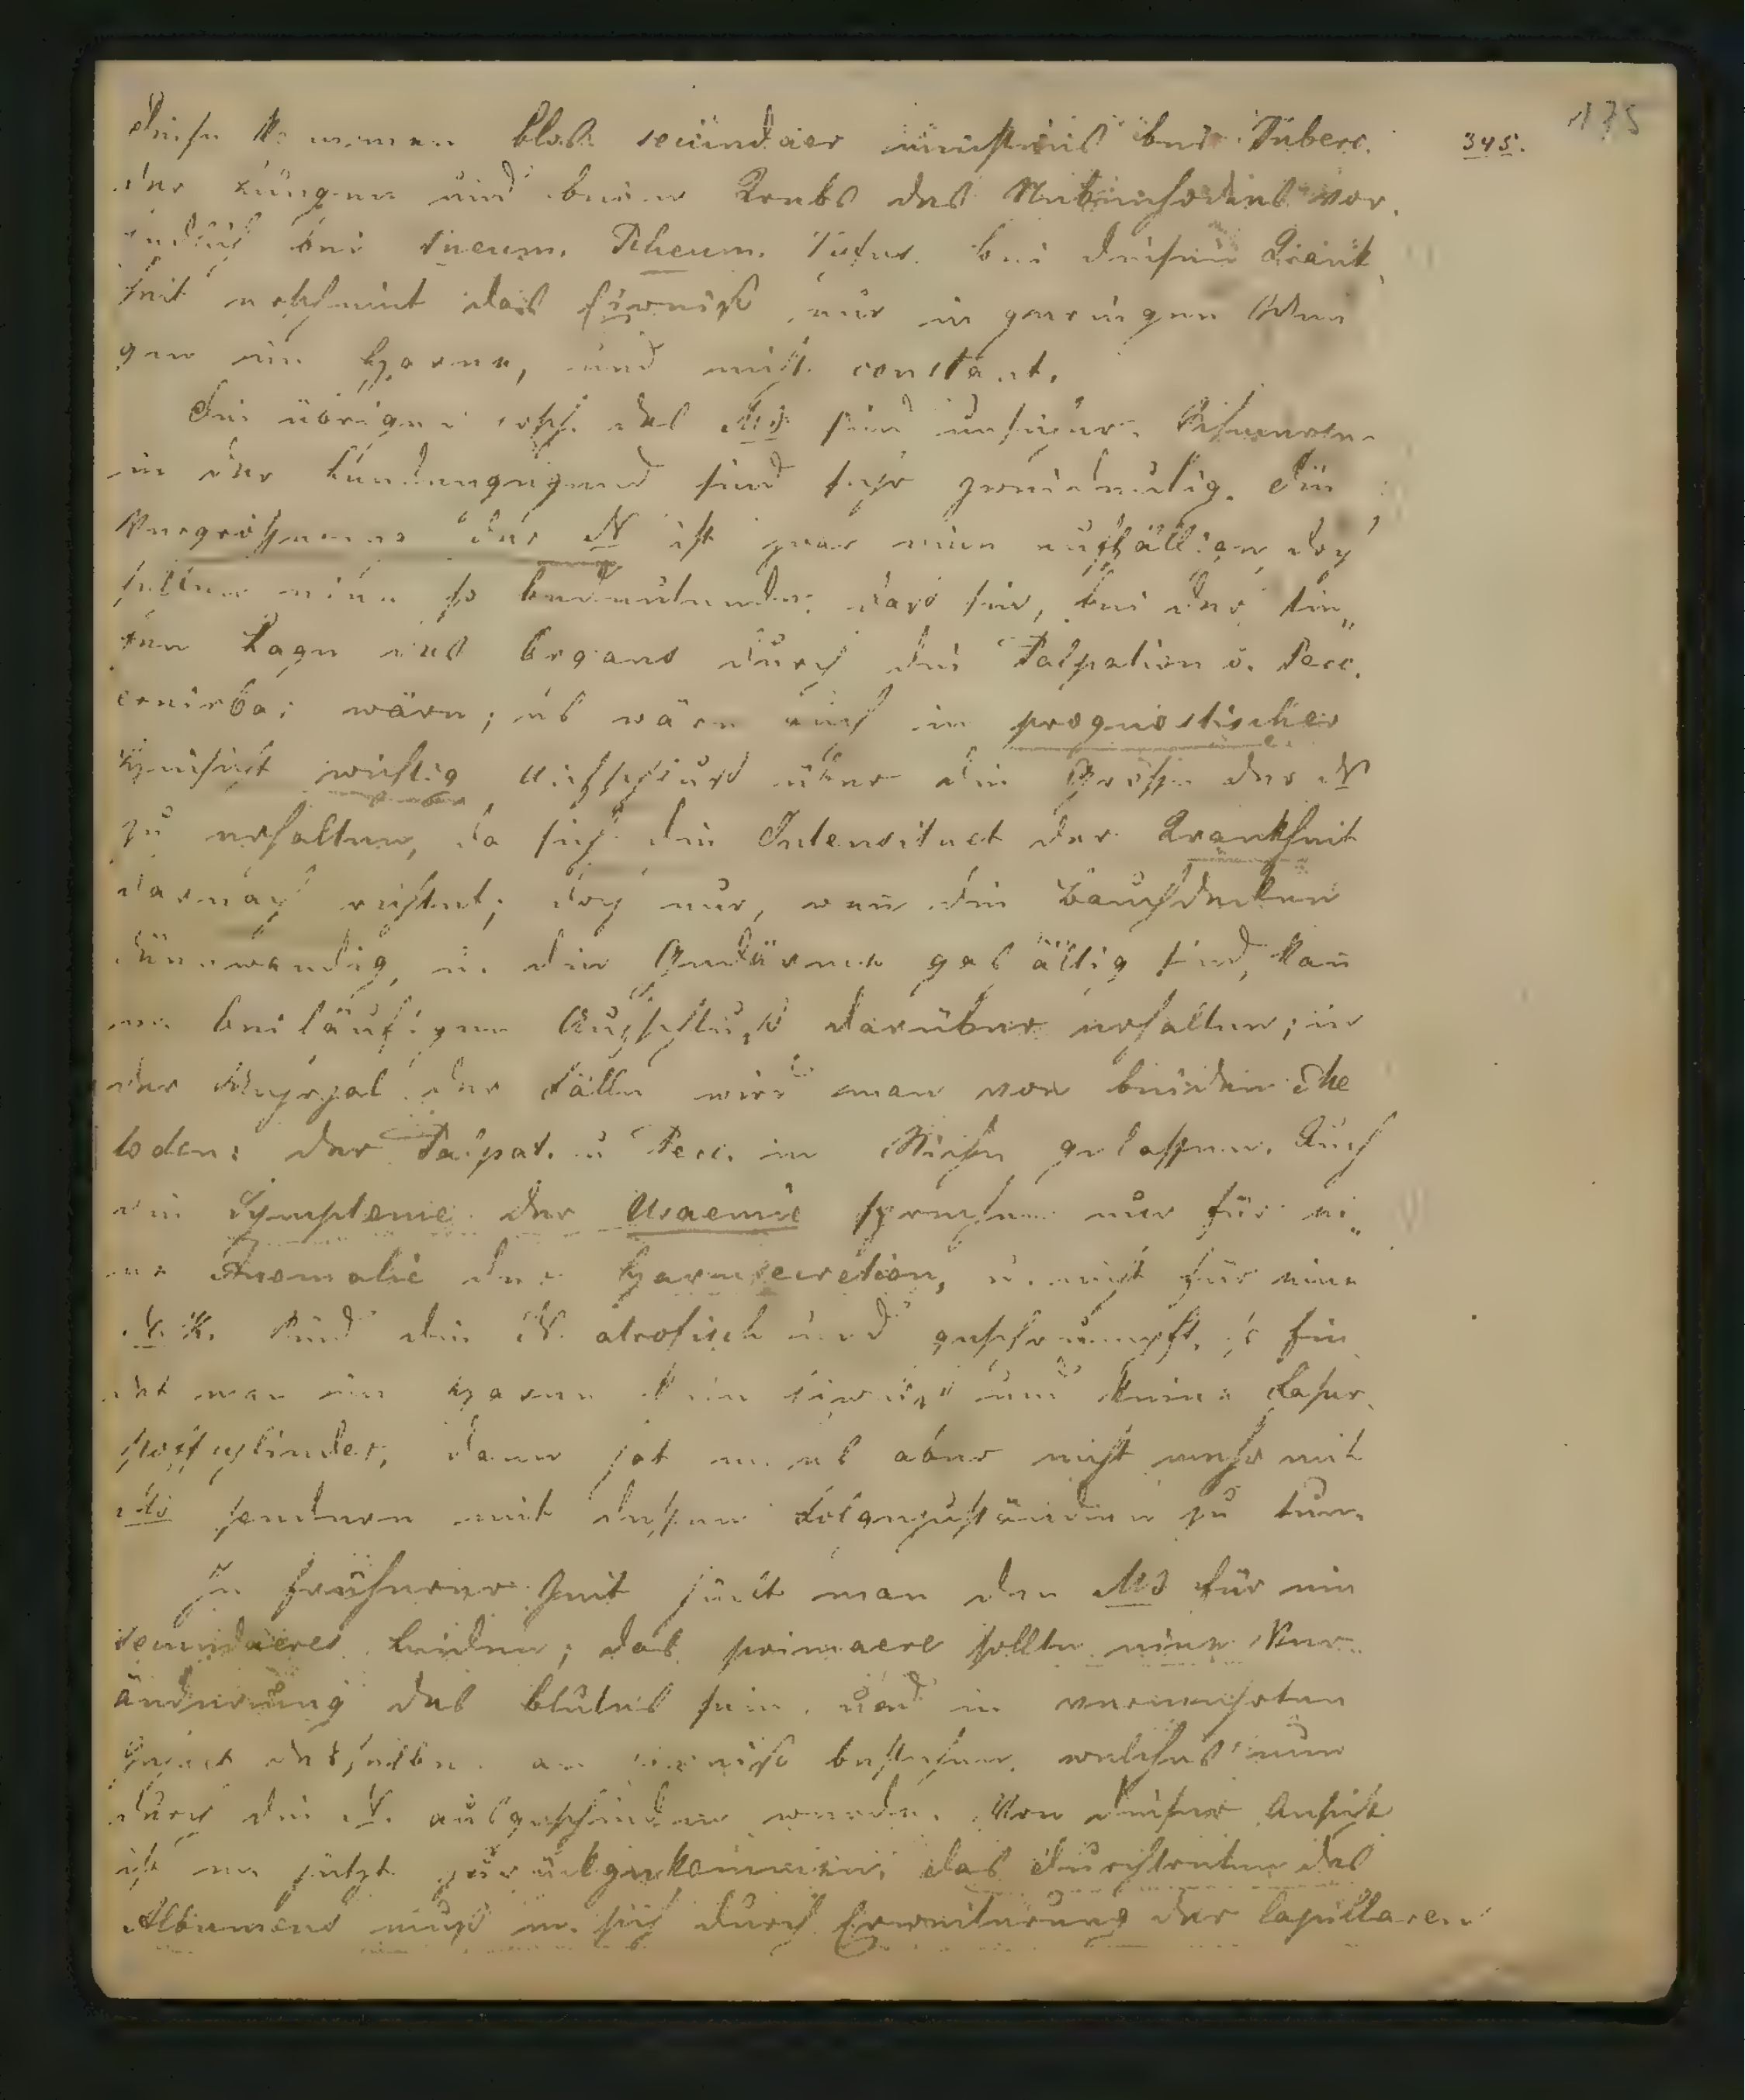 175
345.
diese kommen bloß secundaer meistens bei Tuberc.
der Lungen und beim Krebs des Nahrungs vor.
endlich bei Pneum. Rheum. Tifus. bei diesen Krank
heit erscheint das Eiweiß nur in geringen Men
gen im Harne, und nicht constant.
Die übrigen ersch. des MB sind unsicher. Schmerzen
in der Lendengegend sind sehr zweideutig. Die
Vergrößerung der N ist zwar eine auffällige, doch
selten eine so bedeutende, dass sie, bei der tie„
fen Lage des Organs durch die Palpation u. Perc.
eruirbar wäre; es wäre auch in prognostischer
Hinsicht wichtig Aufschluß über die Größe der N
zu erhalten, da sich die Intensitaet der Krankheit
darnach richtet; doch nur, wenn die Bauchdecken
dünnwandig, u. die Gedärme gasältig sind, kañ
m. beiläufigen Aufschluß darüber erhalten; in
der Mehrzal der Fälle wird man von beiden Me
toden: der Palpat. u Perc. im Stiche gelassen. Auch
die Symptome der Uraemie sprechen nur für ei„
ne Anomalie der Harnsecretion, u. nicht für eine
N. K. Sind die N. atrofisch und geschrumpft, so fin
det man im Harne kein Eiweiß und keine Faser
stoffcylinder, dann hat m. es aber nicht mehr mit
MB sondern mit dessen Folgezuständen zu tun.
In früherer Zeit hielt man den MB für ein
secundaeres Leiden; das primaere sollte eine Ver
änderung des Blutes sein, und in vermehrten
Gehalt desselben an Eiweiß bestehen, welches nun
durch die N. ausgeschieden werde. Von dieser Ansicht
ist m. jetzt zurückgekommen; das Durchtreten des
Albumens muß m. sich durch Erweiterung der Capillaren